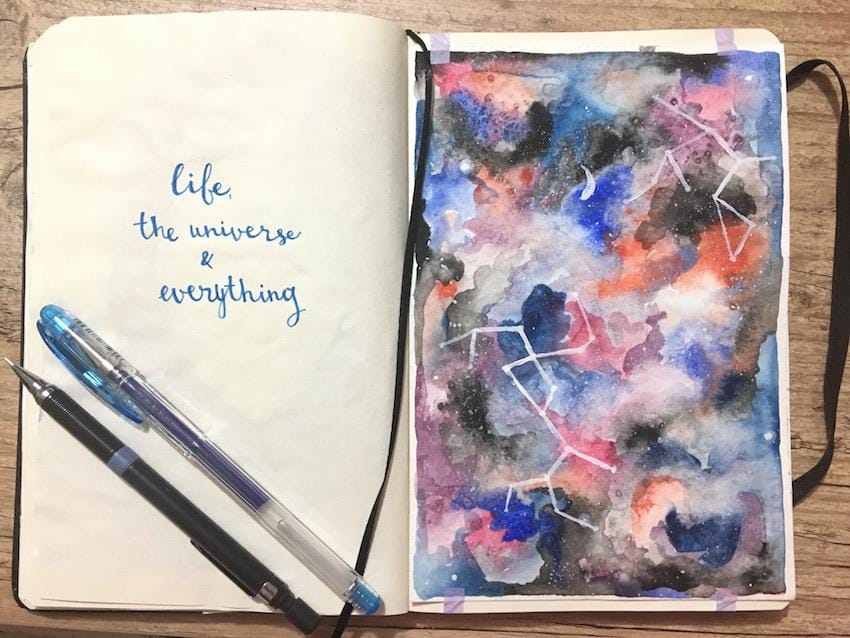 life,
the universe
&
everything